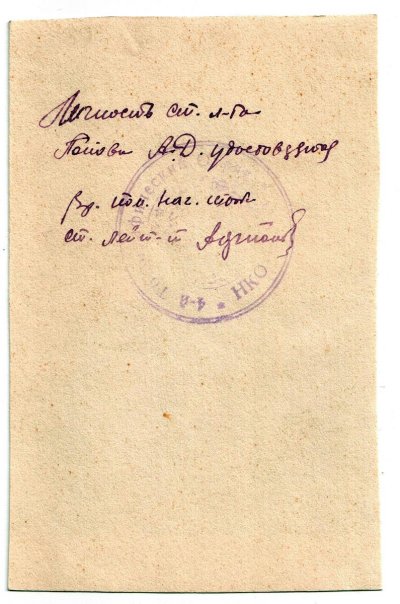 Личность ст. л-та
Попова А.Д. удостоверяю
Вр. пом. нач.
ст. лейт-т
4-й
НКО